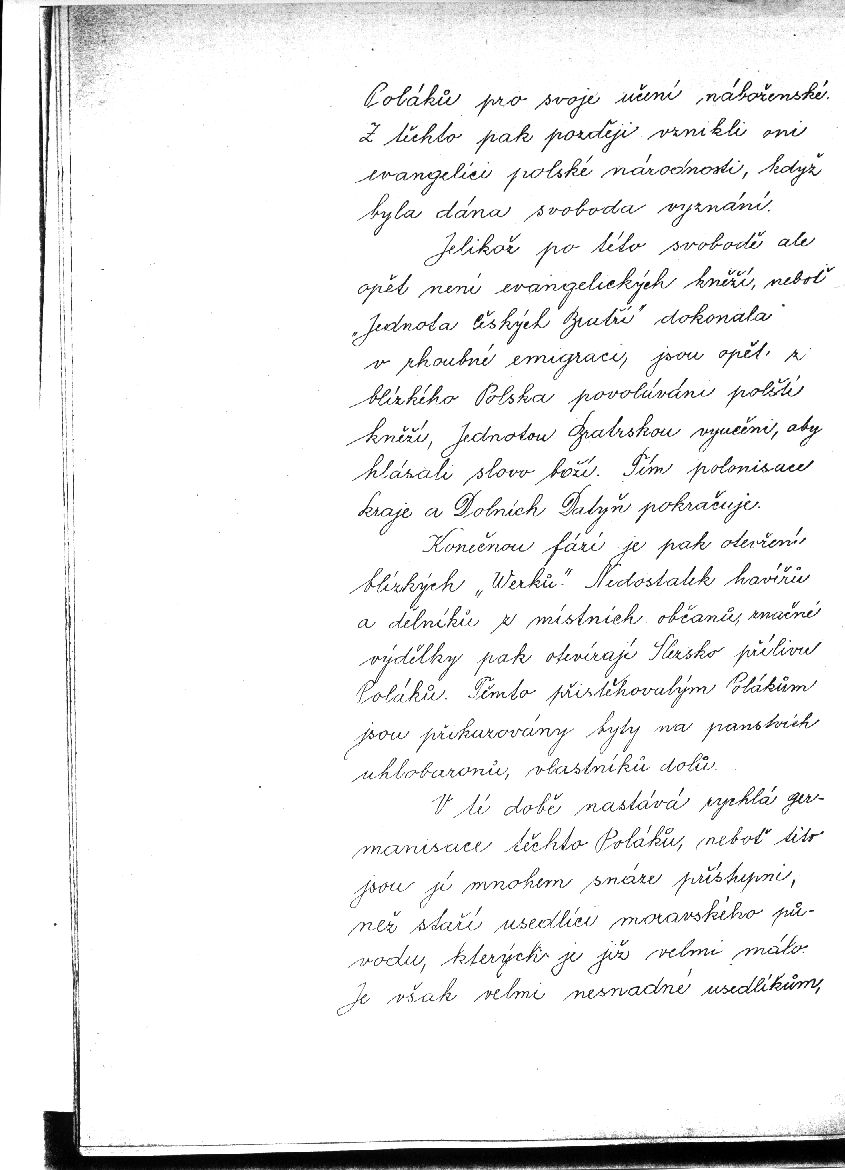 Poláků pro svoje učení náboženské.
Z těchto pak později vznikli oni
evangelíci polské národnosti, když
byla dána svoboda vyznání.
Jelikož po této svobodě ale
opět není evangelických kněží, neboť
„Jednota českých Bratří" dokonala
v zhoubné emigraci, jsou opět z
blízkého Polska povoláváni polští
kněží, Jednotou Bratrskou vyučeni, aby
hlásali slovo boží. Tím polonisace
kraje a Dolních Datyň pokračuje.
Konečnou fází je pak otevření
blízkých „Werků". Nedostatek havířů
a dělníků z místních občanů, značné
výdělky pak otevírají Slezsko přílivu
Poláků. Těmto přistěhovalým Polákům
jsou přikazovány byty na panstvích
uhlobaronů, vlastníků dolů.
V té době nastává rychlá ger-
manisace těchto Poláků, neboť tito
jsou jí mnohem snáze přístupni,
než staří usedlíci moravského pů-
vodu, kterých je již velmi málo.
Je však velmi nesnadné usedlíkům,